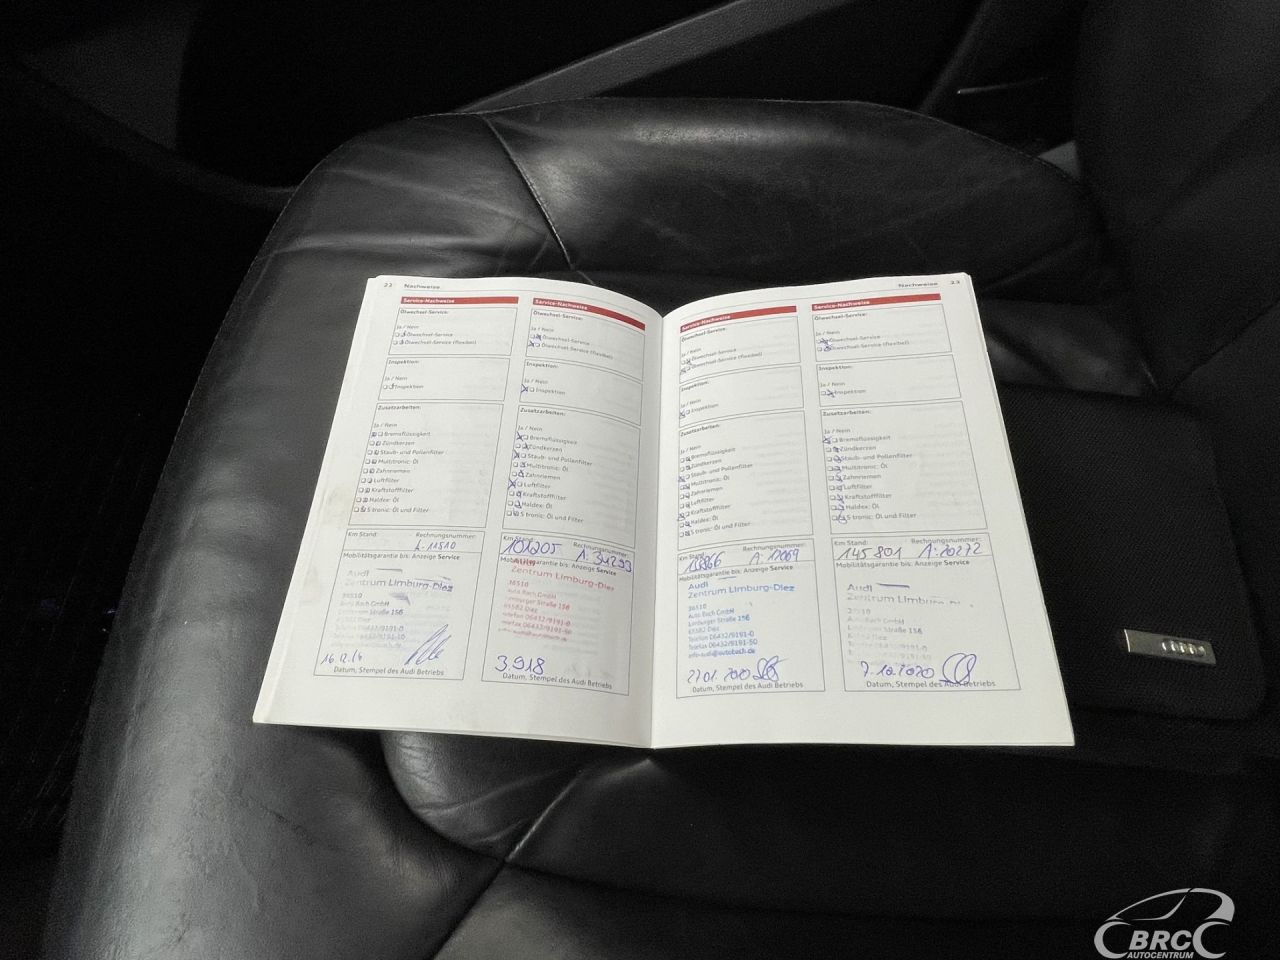 22 Nachweise
Service-Nachweise
Ölwechsel-Service:
Ja / Nein
Ölwechsel-Service
Ölwechsel-Service (flexibel)
Inspektion:
Ja / Nein
Inspektion
Zusatzarbeiten:
Ja / Nein
Bremsflüssigkeit
Zündkerzen
Staub- und Pollenfilter
Multitronic: Öl
Zahnriemen
Luftfilter
Kraftstofffilter
Haldex: Öl
S tronic: Öl und Filter
Km Stand: Rechnungsnummer:
Mobilitätsgarantie bis: Anzeige Service
Audi
Zentrum Limburg-Diez
36510
Auto Bach GmbH
Limburger Straße 156
Telefon 06432/9191-0
16.12.16
Datum, Stempel des Audi Betriebs
Service-Nachweise
Ölwechsel-Service:
Ja / Nein
Ölwechsel-Service
Ölwechsel-Service (flexibel)
Inspektion:
Ja / Nein
Inspektion
Zusatzarbeiten:
Ja / Nein
Bremsflüssigkeit
Zündkerzen
Staub- und Pollenfilter
Multitronic: Öl
Zahnriemen
Luftfilter
Kraftstofffilter
Haldex: Öl
S tronic: Öl und Filter
Km Stand: Rechnungsnummer:
101205 A. 31293
Mobilitätsgarantie bis: Anzeige Service
Audi
Zentrum Limburg-Diez
36510
Auto Bach GmbH
Limburger Straße 156
65582 Diez
Telefon 06432/9191-0
Telefax 06432/9191-50
3.9.18
Datum, Stempel des Audi Betriebs
Nachweise 23
Service-Nachweise
Ölwechsel-Service:
Ja / Nein
Ölwechsel-Service
Ölwechsel-Service (flexibel)
Inspektion:
Ja / Nein
Inspektion
Zusatzarbeiten:
Ja / Nein
Bremsflüssigkeit
Zündkerzen
Staub- und Pollenfilter
Multitronic: Öl
Zahnriemen
Luftfilter
Kraftstofffilter
Haldex: Öl
S tronic: Öl und Filter
Km Stand: Rechnungsnummer:
Mobilitätsgarantie bis: Anzeige Service
Audi
Zentrum Limburg-Diez
36510
Auto Bach GmbH
Limburger Straße 156
65582 Diez
Telefon 06432/9191-0
Telefax 06432/9191-50
info-audi@autobach.de
27.01.2020
Datum, Stempel des Audi Betriebs
Service-Nachweise
Ölwechsel-Service:
Ja / Nein
Ölwechsel-Service
Ölwechsel-Service (flexibel)
Inspektion:
Ja / Nein
Inspektion
Zusatzarbeiten:
Ja / Nein
Bremsflüssigkeit
Zündkerzen
Staub- und Pollenfilter
Multitronic: Öl
Zahnriemen
Luftfilter
Kraftstofffilter
Haldex: Öl
S tronic: Öl und Filter
Km Stand: Rechnungsnummer:
145 801 A: 20272
Mobilitätsgarantie bis: Anzeige Service
Audi
Zentrum Limburg-Diez
36510
Auto Bach GmbH
Limburger Straße 156
7.10.2020
Datum, Stempel des Audi Betriebs
BRC
AUTOCENTRUM